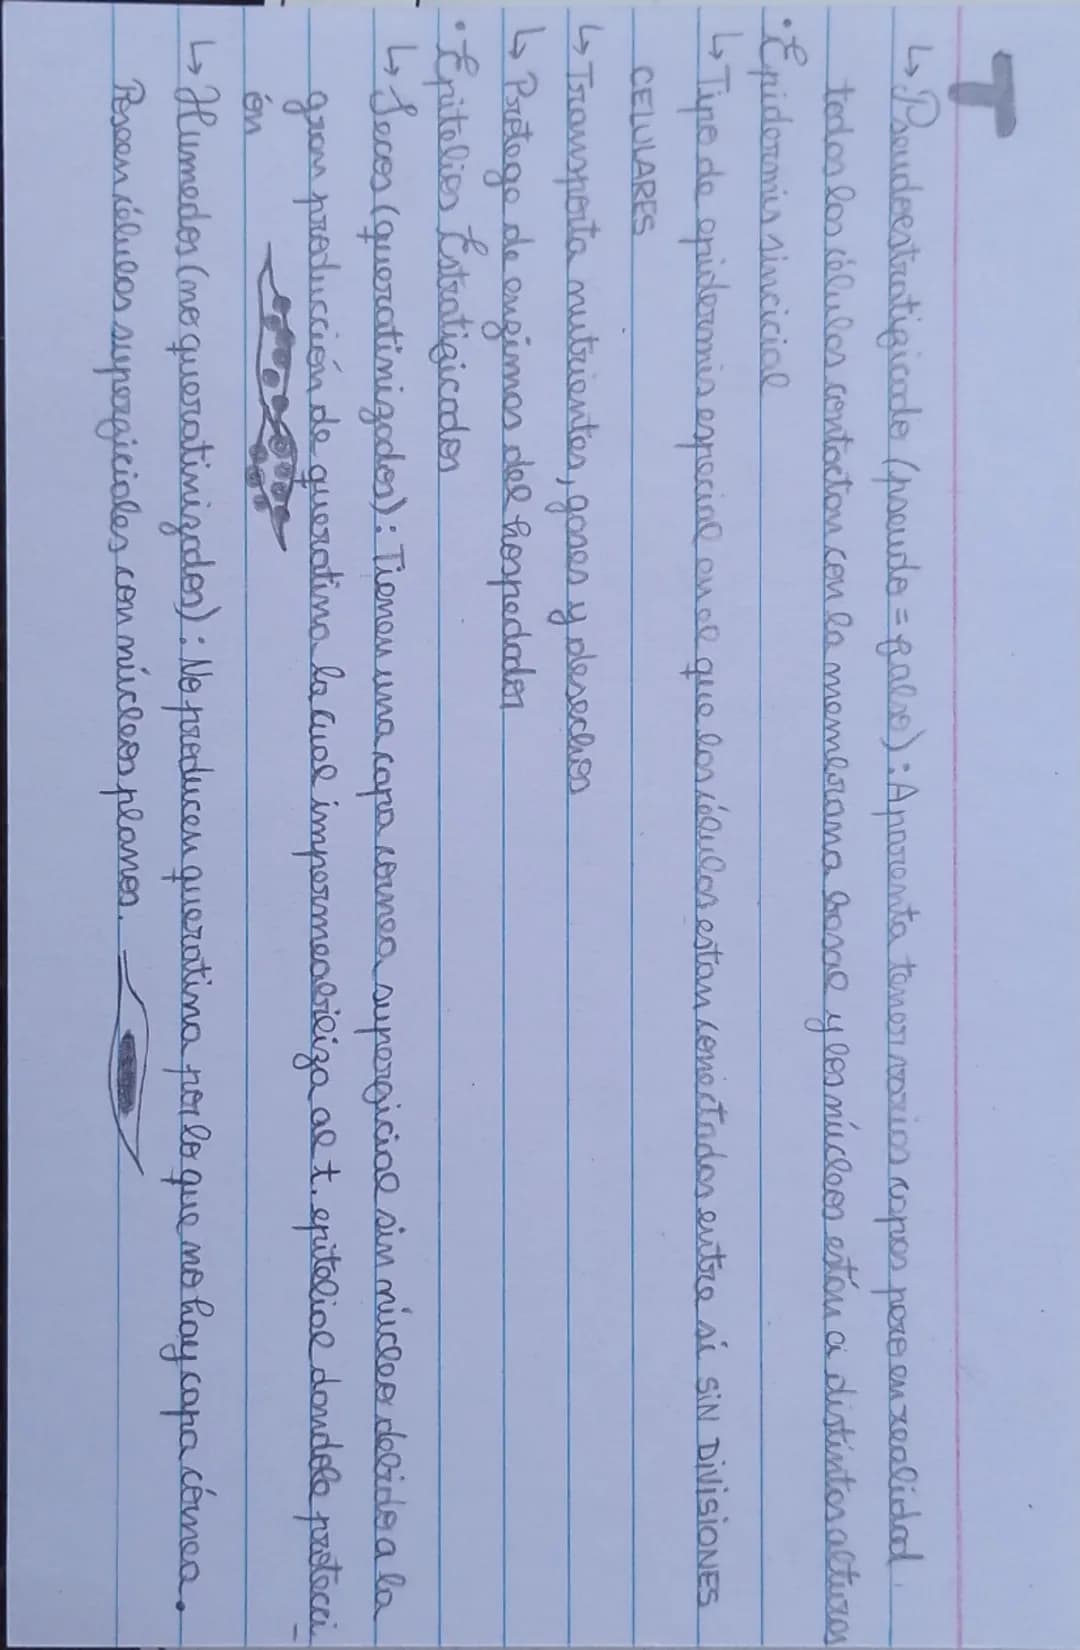 T
↳ Pseudoestratificado (pseudo = falso): Aparenta tener varias capas pero en realidad
todas las células contactan con la membrana basal y los núcleos están a distintas alturas
• Epidermis sincicial
↳ Tipo de epidermis especial en el que las células estan conectadas entre sí SIN DIVISIONES
CELULARES
↳ Transporta nutrientes, gases y desechos
↳ Protege de enzimas del hospedador
• Epitelios Estratificados
↳ Secos (queratinizados): Tienen una capa cornea superficial sin núcleo debido a la
gran producción de queratina la cual impermeabiliza al t. epitelial dandole protecci
ón
↳ Humedos (no queratinizados): No producen queratina por lo que no hay capa córnea.
Poseen células superficiales con núcleos planos.